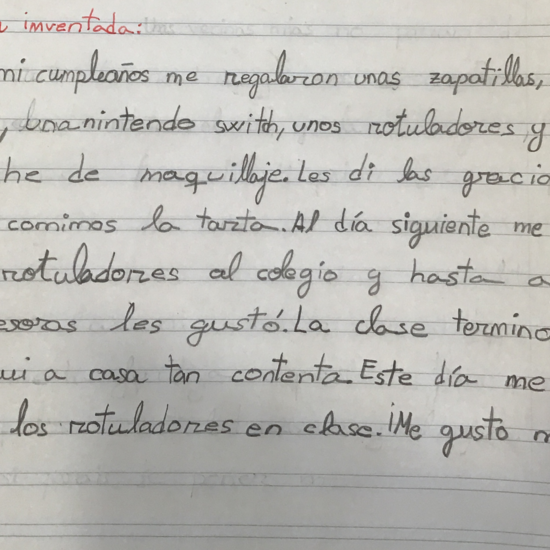 a imventada:
mi cumpleaños me regalaron unas zapatillas,
, una nintendo swith, unos rotuladores y
he de maquillaje. Les di las gracia
comimos la tarta. Al día siguiente me
rotuladores al colegio y hasta a
esoras les gustó. La clase termino
ui a casa tan contenta. Este día me
los rotuladores en clase. ¡Me gusto m